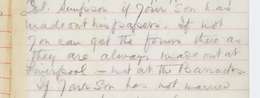 Simpson if Your Son has
made out his papers. If not
You can get the forms there as
They are always made out at
Liverpool – not at the Barracks
If Your Son has not married